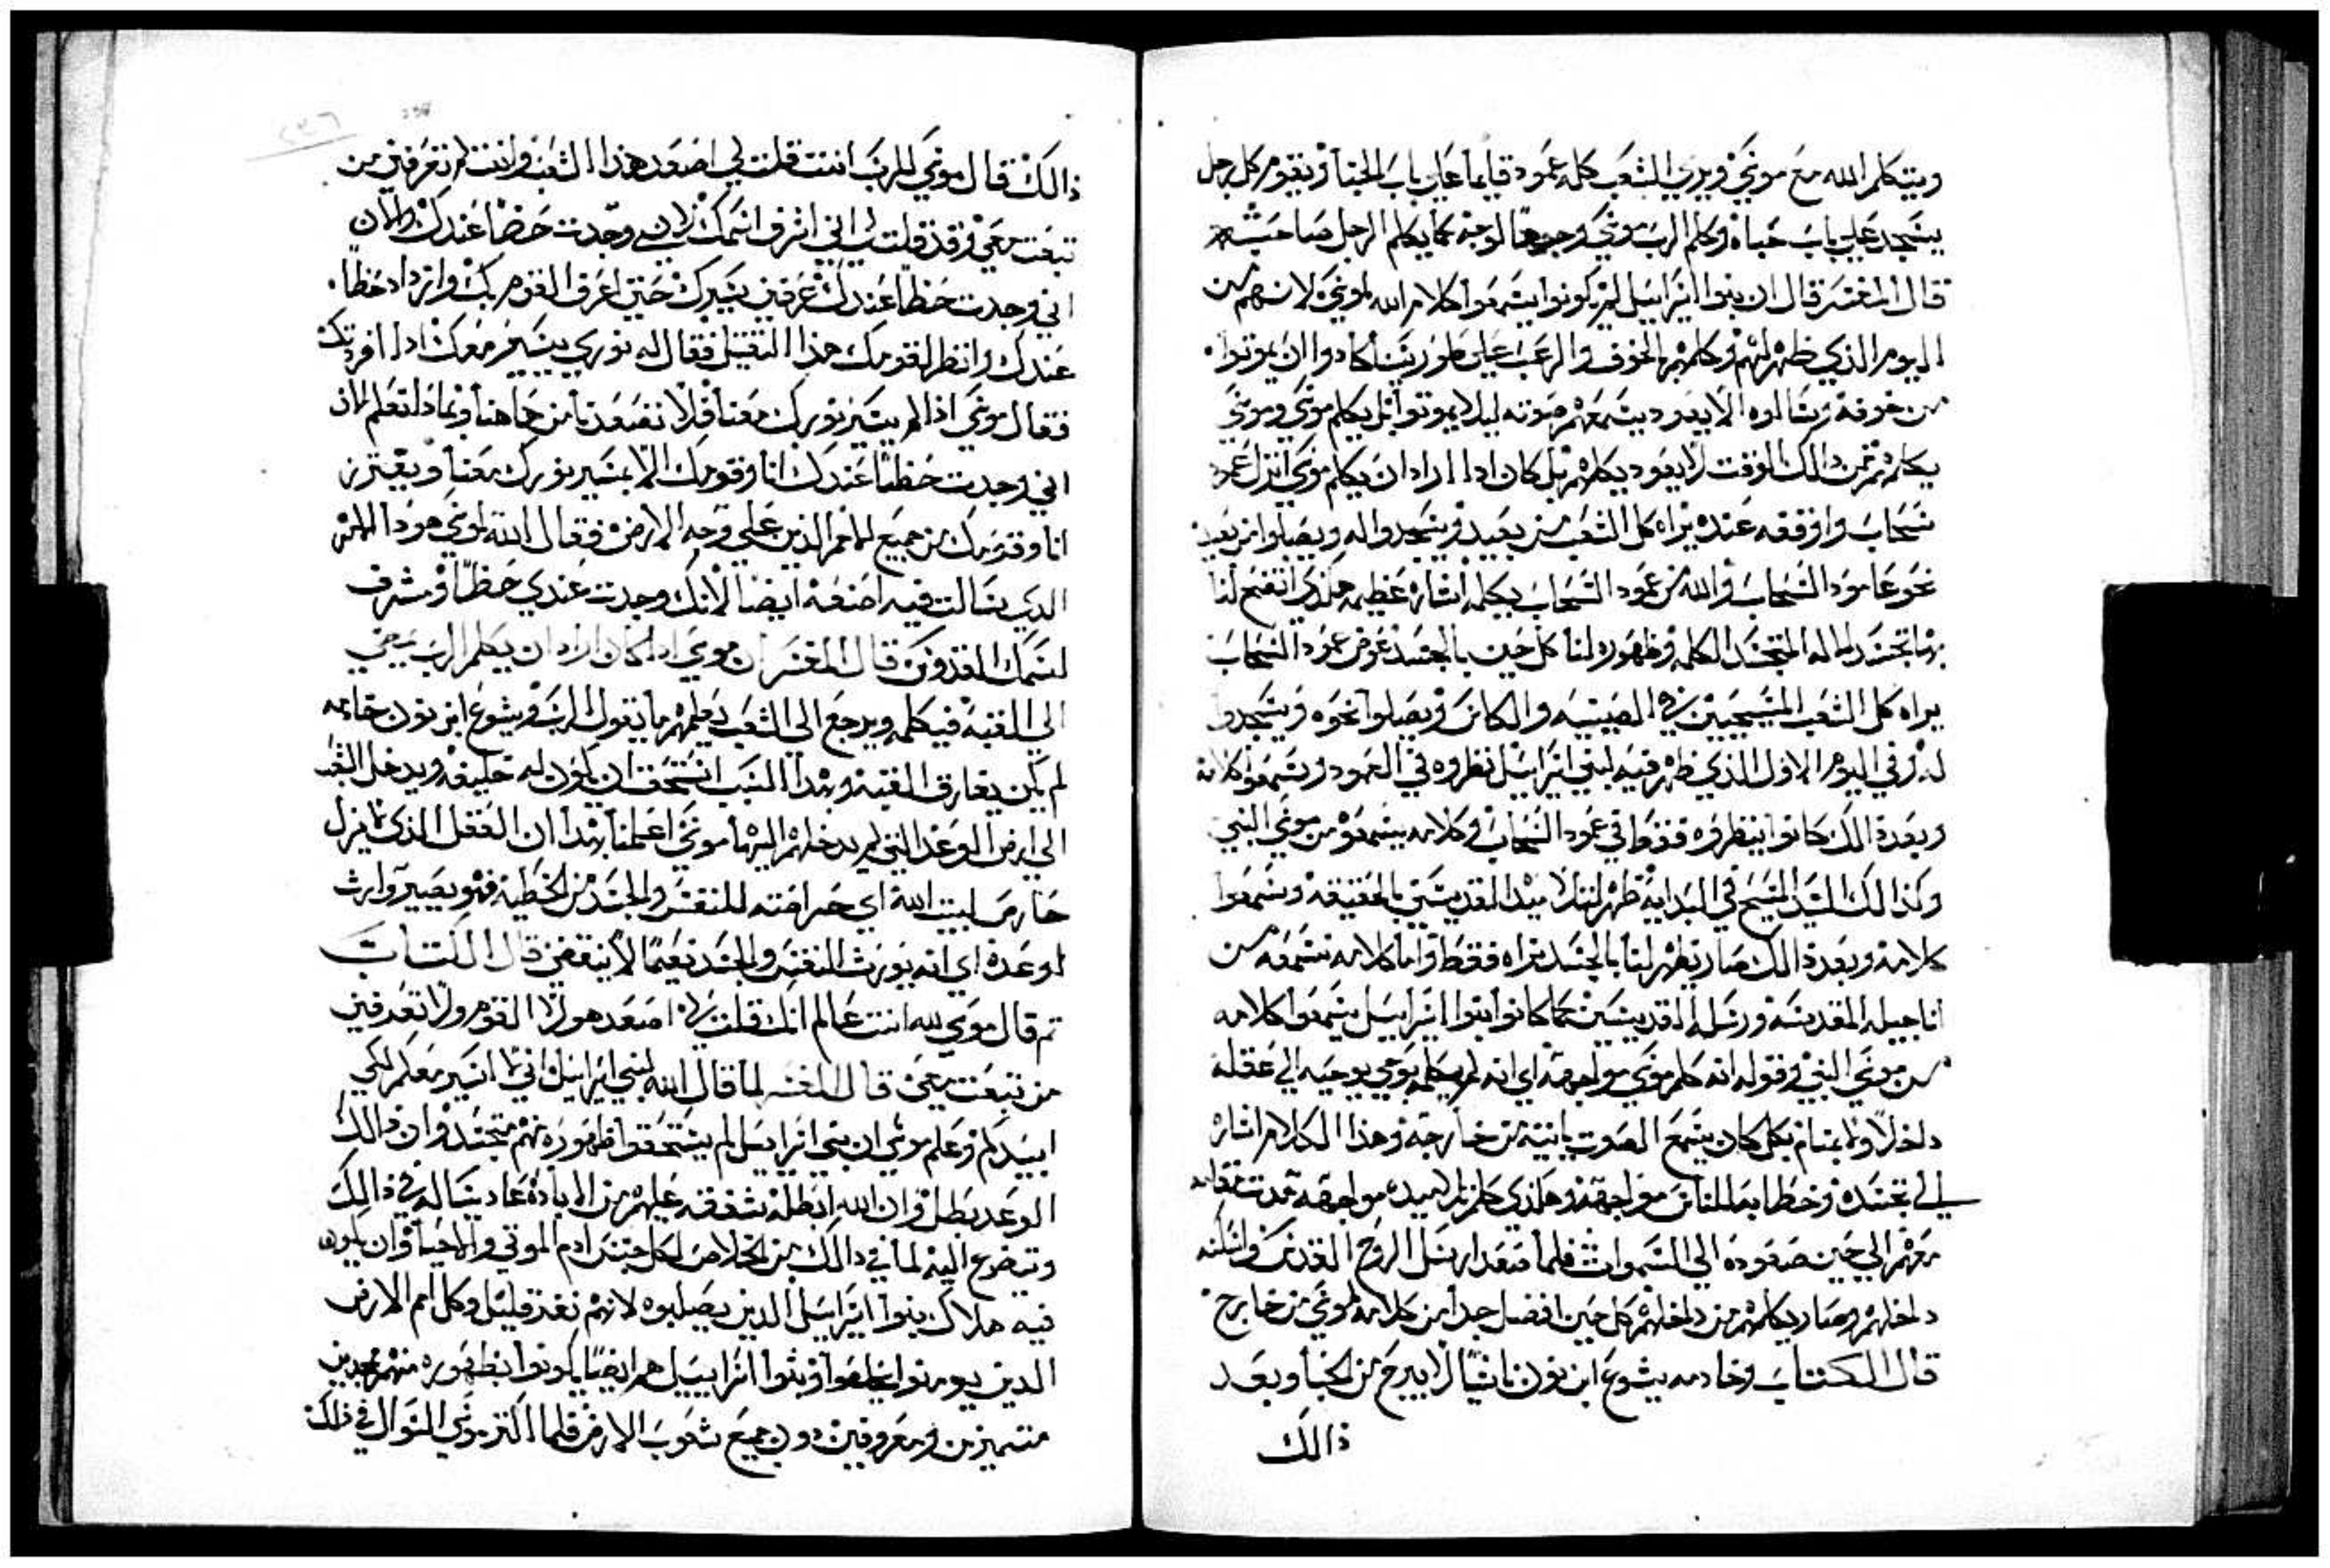 ويتكلم الله مع موسي ويري الشعب كله عمود قايما علي باب الخبا ويقوم كل رجل
يسجد علي باب خباه وكلم الرب موسي وجها لوجه كما يكلم الرجل صاحبه
قال المفسر قال ان بنوا اسراييل لم يكونوا يسمعوا كلام الله لموسي لانهم من
اليوم الذي ظهر لهم وكلمهم بالخوف والرعب علي طور سينا كادوا ان يموتوا
من خوفه وسالوه الا يعود يسمعهم صوته ليلا يموتوا بل يكلم موسي وموسي
يكلمهم فمن دالك الوقت لا يعود يكلمهم بل كان ادا اراد ان يكلم موسي انزل عمود
سحاب واوقفه عنده يراه كل الشعب من بعيد ويسجدوا له ويصلوا من بعيد
نحو عامود السحاب والله من عمود السحاب يكلمه اشاره عظيمه هكذي اتضح لنا
بها تجسد الاله المتجسد الكلمه وظهوره لنا كل حين بالجسد عوض عمود السحاب
يراه كل الشعب المسيحيين في الصينيه والكاس ويصلوا نحوه ويسجدوا
له وفي اليوم الاول الذي ظهر فيه لبني اسراييل نظروه في العمود وسمعوا كلامه
وبعد دالك كانوا ينظروه فقط في عمود السحاب وكلامه يسمعوه من موسي النبي
وكذالك السيد المسيح في البدايه ظهر لتلاميده القديسين بالحقيقه وسمعوا
كلامه وبعد دالك صار يظهر لنا بالجسد نراه فقط واما كلامه نسمعه من
اناجيله المقدسه ورسله القديسين كما كانوا بنوا اسراييل يسمعوا كلامه
من موسي النبي وقوله انه كلم موسي مواجهة اي انه لم يكلمه بوحي يوحيه الي عقله
داخلا ولا بمنام بل كان يسمع الصوت باذنيه من خارجه وهذا الكلام اشاره
الي تجسده وخطابه للناس مواجهة وهكذي كلم تلاميده مواجهة مدت مقامه
معهم الي حين صعوده الي السموات فلما صعد ارسل الروح القدس واسكنه
داخلهم وصار يكلمهم من داخلهم كل حين افضل جدا من كلامه لموسي من خارج
قال الكتاب وخادمه يشوع ابن نون شابا لا يبرح من الخبا وبعد
ذالك
ذالك قال موسي للرب انت قلت لي اصعد هذا الشعب وانت لم تعرفني من
تبعت معي وقد قلت لي اني اشرف اسمك لاني وجدت حضا عندك والان
اني وجدت حظا عندك عرفني بسيرك حتي اعرف القوم بك وازداد حظا
عندك وانظر لقومك هذا الثقيل فقال له نوري يسير معك ادا افردتك
فقال موسي اذا لم يسير نورك معنا فلا تصعدنا من هاهنا وبماذا تعلم
اني وجدت حظا عندك انا وقومك الا بمسير نورك معنا ويعتزن
انا وقومك من جميع الامم الذين علي وجه الارض فقال الله لموسي هودا الامر
الدي سالت فيه اصنعه ايضا لانك وجدت عندي حظا وشرف
اسمك القدوس قال المفسر ان موسي ادا كان اراد ان يكلم الرب يمضي
الي القبه فيكلمه ويرجع الي الشعب يعلمهم ما يقول الرب ويشوع ابن نون خادمه
لم يكن يفارق القبه وبهذا السبب استحق ان يكون له خليفه ويدخل الشعب
الي ارض الوعد التي لم يدخلهم اليها موسي اعلمنا بهذا ان العقل الذي لا يزل
حارس لبيت الله اي حراسته للنفس والجسد من الخطيه فهو يصير وارث
لوعده اي انه يورث النفس والجسد نعيما لا ينقضي قال الكتاب
تم قال موسي لله انت عالم انك قلت لي اصعد هولا القوم ولا تعرفني
من تبعت معي قال المفسر لما قال الله لبني اسراييل اني لا اسير معكم لكي
ابيدكم وعلم موسي ان بني اسراييل لم يستحقوا ظهوره منهم متجسد وان ذالك
الوعد بطل وان الله ابطله شفقه عليهم من الاباده عاد يساله في ذالك
ويتضرع اليه لما في دالك من الخلاص لكل جنس ادم الموتي والاحيا وان يكون
فيه هلاك بنوا اسراييل الدين يصلبوه لانهم نفد قليل وكل امم الارض
الدين يومنوا يخلصوا وبنوا اسراييل هم ايضا يكونوا بظهوره منهم ممجدين
متميزين ومعروفين دون جميع شعوب الارض فلما اكتر موسي السوال في ذلك